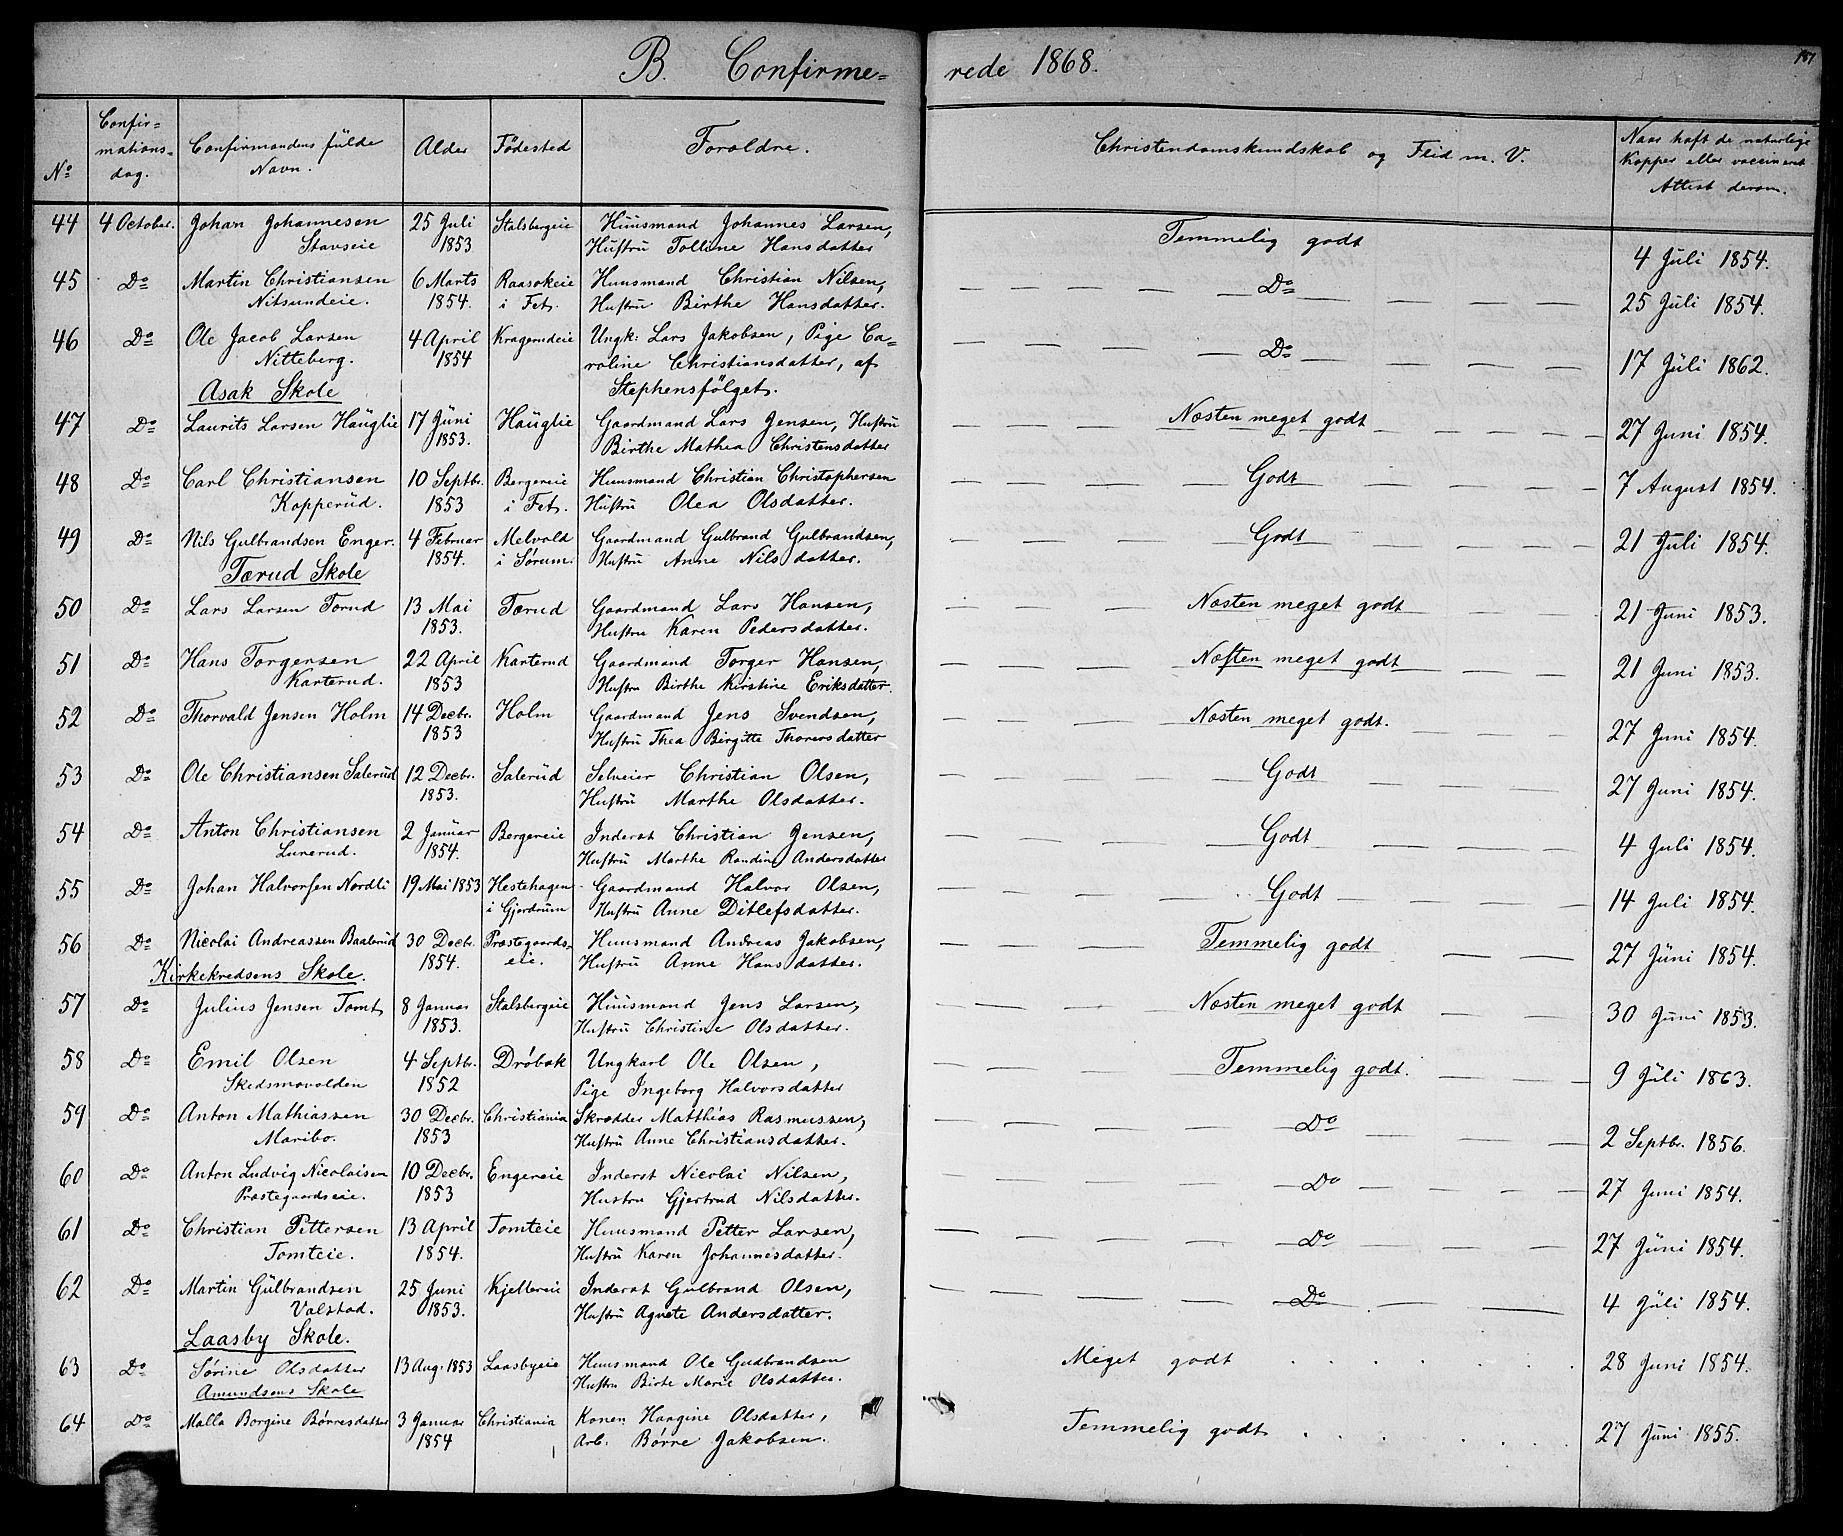 B. Confirme=
rede 1868.
187
No
Confir=
mations=
dag.
Confirmandens fulde
Navn.
Alder
Fødested
Forældre.
Christendomskundskab og Flid m. V.
Naar haft de naturlige
Kopper eller vaccineret
Attest derom.
44 4 October. Johan Johannesen 25 Juli Stalsbergeie Huusmand Johannes Larsen, Temmelig godt 4 Juli 1854.
Stavseie 1853 Hustru Tolline Hansdatter
45 Do Martin Christiansen 6 Marts Raasokeie Huusmand Christian Nilsen, Do 25 Juli 1854.
Nitsundeie. 1854. i Fet. Hustru Birthe Hansdatter.
46 Do Ole Jacob Larsen 4 April Kragerudeie Ungk: Lars Jakobsen, Pige Ca= Do 17 Juli 1862.
Nitteberg. 1854 roline Christiansdatter, af
Asak Skole Stephensfølget.
47 Do Laurits Larsen Hauglie 17 Juni Hauglie Gaardmand Lars Jensen, Hustru Næsten meget godt 27 Juni 1854.
1853. Birthe Mathea Christensdatter
48 Do Carl Christiansen 10 Septbr. Bergereie Huusmand Christian Christophersen Godt 7 August 1854.
Kopperud. 1853 i Fet. Hustru Olea Olsdatter.
49 Do Nils Gulbrandsen Enger. 4 Februar Melvold Gaardmand Gulbrand Gulbrandsen, Godt 21 Juli 1854.
1854. i Sørum. Hustru Anne Nilsdatter.
Tærud Skole
50 Do Lars Larsen Tærud 13 Mai Tærud Gaardmand Lars Hansen, Næsten meget godt 21 Juni 1853.
1853. Hustru Karen Pedersdatter.
51 Do Hans Torgersen 22 April Karterud Gaardmand Torger Hansen, Næsten meget godt 21 Juni 1853.
Karterud. 1853 Hustru Birthe Kirstine Eriksdatter.
52 Do Thorvald Jensen Holm 14 Decbr. Holm Gaardmand Jens Svendsen, Næsten meget godt. 27 Juni 1854.
1853 Hustru Thea Birgitte Thorersdatter
53 Do Ole Christiansen Salerud 12 Decbr. Salerud Selveier Christian Olsen, Godt 27 Juni 1854.
1853. Hustru Marthe Olsdatter.
54 Do Anton Christiansen 2 Januar Bergereie Inderst Christian Jensen, Godt 4 Juli 1854.
Lunerud. 1854. Hustru Marthe Randine Andersdatter
55 Do Johan Halvorsen Nordli 19 Mai 1853 Hestehagen Gaardmand Halvor Olsen, Godt 14 Juli 1854.
i Gjerdrum Hustru Anne Ditlefsdatter.
56 Do Nicolai Andreassen Baalerud 30 Decbr. Præstegaards= Huusmand Andreas Jakobsen, Temmelig godt 27 Juni 1854.
1854. eie. Hustru Anne Hansdatter.
Kirkekredsens Skole.
57 Do Julius Jensen Tomt 8 Januar Stalsbergeie Huusmand Jens Larsen, Næsten meget godt 30 Juni 1853.
1853. Hustru Christine Olsdatter.
58 Do Emil Olsen 4 Septbr. Drøbak Ungkarl Ole Olsen, Temmelig godt. 9 Juli 1863.
Skedsmovolden 1852 Pige Ingeborg Halvorsdatter
59 Do Anton Mathiassen 30 Decbr. Christiania Skrædder Matthias Rasmussen, Do 2 Septbr. 1856.
Maribo. 1853 Hustru Anne Christiansdatter.
60 Do Anton Ludvig Nicolaisen 10 Decbr. Engereie Inderst Nicolai Nilsen, Do 27 Juni 1854.
Præstegaardseie. 1853 Hustru Gjertrud Nilsdatter.
61 Do Christian Pettersen 13 April Tomteie Huusmand Petter Larsen, Do 27 Juni 1854.
Tomteie. 1854. Hustru Karen Johannesdatter.
62 Do Martin Gulbrandsen 25 Juni Kjellereie Inderst Gulbrand Olsen, Do 4 Juli 1854.
Valstad. 1853. Hustru Agnete Andersdatter.
Laasby Skole.
63 Do Sørine Olsdatter 13 Aug. 1853 Laasbyeie Huusmand Ole Gudbrandsen Meget godt 28 Juni 1854.
Amundsens Skole Hustru Birte Marie Olsdatter.
64 Do Malla Borgine Børresdatter 3 Januar Christiania Konen Haagine Olsdatter, Temmelig godt 27 Juni 1855.
1854 Arb. Børre Jakobsen.